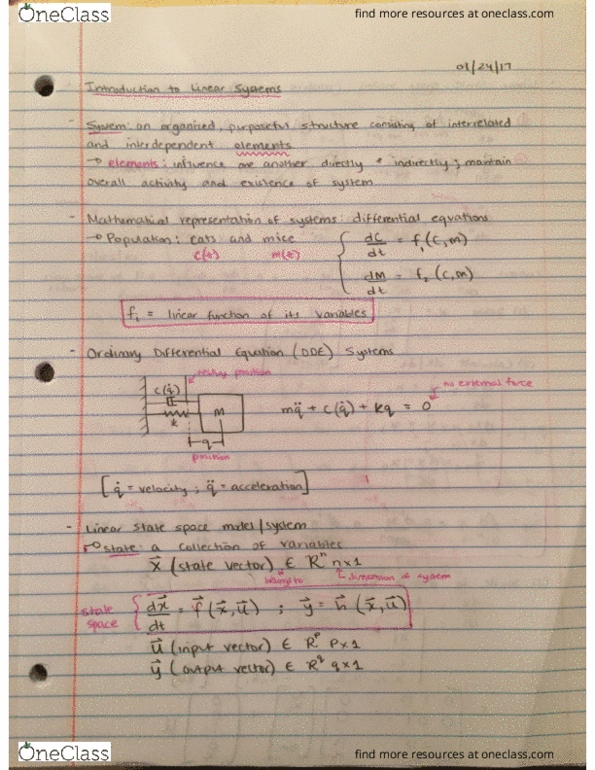 OneClass find more resources at oneclass.com
01/24/17
Introduction to Linear Systems
- System: an organized, purposeful structure consisting of interrelated
and interdependent elements
→ elements: influence one another directly & indirectly; maintain
overall activity and existence of system
- Mathematical representation of systems: differential equations
→ Population: cats and mice { dC/dt = f₁(C,m)
c(t) m(t)
dM/dt = f₂(C,m)
fᵢ = linear function of its variables
- Ordinary Differential Equation (ODE) Systems
resting position
no external force
c(q̇)
k M mq̈ + c(q̇) + kq = 0
q
position
[q̇ = velocity ; q̈ = acceleration]
- Linear state space model/system
→ state: a collection of variables
x⃗ (state vector) ∈ Rⁿ n×1
belongs to dimension of system
state space { dx⃗/dt = f⃗(x⃗,u⃗) ; y⃗ = h⃗(x⃗,u⃗)
u⃗ (input vector) ∈ Rᵖ p×1
y⃗ (output vector) ∈ R^q q×1
OneClass find more resources at oneclass.com